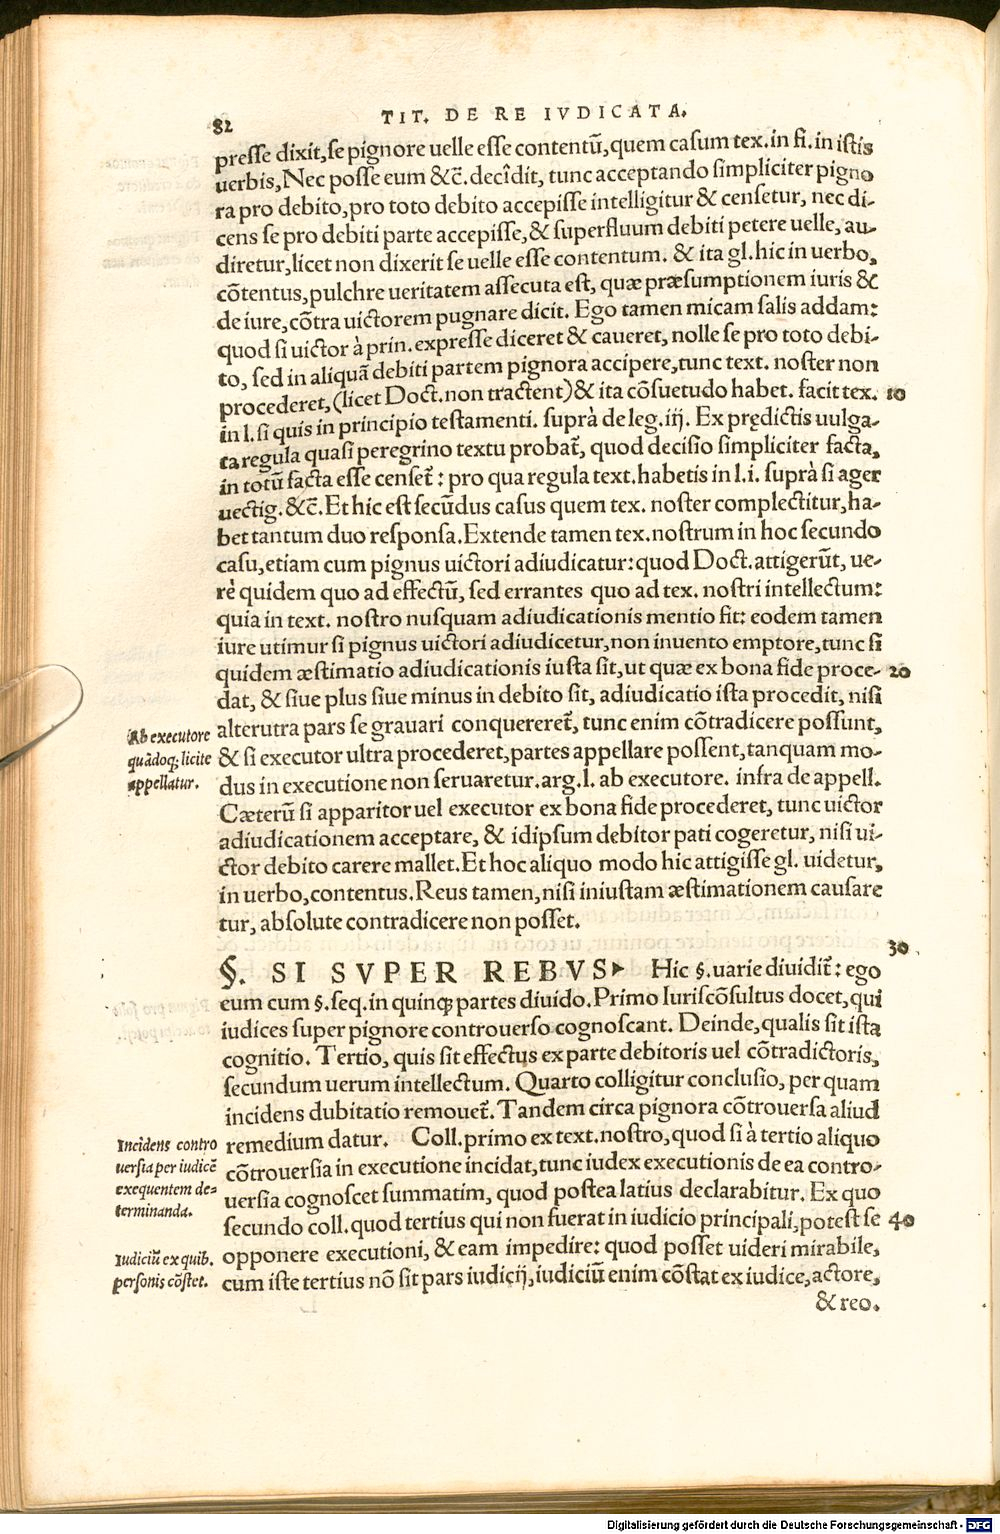 82
TIT. DE RE IVDICATA.
presse dixit, se pignore uelle esse contentũ, quem casum tex. in fi. in istis
uerbis, Nec posse eum &c̃. decîdit, tunc acceptando simpliciter pigno
ra pro debito, pro toto debito accepisse intelligitur & censetur, nec di-
cens se pro debiti parte accepisse, & superfluum debiti petere uelle, au-
diretur, licet non dixerit se uelle esse contentum. & ita gl. hic in uerbo,
cõtentus, pulchre ueritatem assecuta est, quæ præsumptionem iuris &
de iure, cõtra uictorem pugnare dicit. Ego tamen micam salis addam:
quod si uictor à prin. expresse diceret & caueret, nolle se pro toto debi-
to, sed in aliquã debiti partem pignora accipere, tunc text. noster non
procederet, (licet Doct. non tractent) & ita cõsuetudo habet. facit tex. 10
in l. si quis in principio testamenti. suprà de leg. iij. Ex prędictis uulga-
ta regula quasi peregrino textu probat̃, quod decisio simpliciter facta,
in totũ facta esse censet̃: pro qua regula text. habetis in l. i. suprà si ager
uectig. &c̃. Et hic est secũdus casus quem tex. noster complectitur, ha-
bet tantum duo responsa. Extende tamen tex. nostrum in hoc secundo
casu, etiam cum pignus uictori adiudicatur: quod Doct. attigerũt, ue-
rè quidem quo ad effectũ, sed errantes quo ad tex. nostri intellectum:
quia in text. nostro nusquam adiudicationis mentio fit: eodem tamen
iure utimur si pignus uictori adiudicetur, non inuento emptore, tunc si
quidem æstimatio adiudicationis iusta sit, ut quæ ex bona fide proce- 20
dat, & siue plus siue minus in debito sit, adiudicatio ista procedit, nisi
alterutra pars se grauari conquereret̃, tunc enim cõtradicere possunt,
& si executor ultra procederet, partes appellare possent, tanquam mo-
dus in executione non seruaretur. arg. l. ab executore. infra de appell.
Cæterũ si apparitor uel executor ex bona fide procederet, tunc uictor
adiudicationem acceptare, & idipsum debitor pati cogeretur, nisi ui-
ctor debito carere mallet. Et hoc aliquo modo hic attigisse gl. uidetur,
in uerbo, contentus. Reus tamen, nisi iniustam æstimationem causare
tur, absolute contradicere non posset.
Ab executore
quãdoq; licite
appellatur.
30
§. SI SVPER REBVS Hic §. uarie diuidit̃: ego
eum cum §. seq. in quinq; partes diuido. Primo Iuriscõsultus docet, qui
iudices super pignore controuerso cognoscant. Deinde, qualis sit ista
cognitio. Tertio, quis sit effectus ex parte debitoris uel cõtradictoris,
secundum uerum intellectum. Quarto colligitur conclusio, per quam
incidens dubitatio remouet̃. Tandem circa pignora cõtrouersa aliud
remedium datur. Coll. primo ex text. nostro, quod si à tertio aliquo
cõtrouersia in executione incidat, tunc iudex executionis de ea contro-
uersia cognoscet summatim, quod postea latius declarabitur. Ex quo
secundo coll. quod tertius qui non fuerat in iudicio principali, potest se 40
opponere executioni, & eam impedire: quod posset uideri mirabile,
cum iste tertius nõ sit pars iudicij, iudiciũ enim cõstat ex iudice, actore,
Incidens contro
uersia per iudicẽ
exequentem de-
terminanda.
Iudiciũ ex quib.
personis cõstet.
& reo.
Digitalisierung gefördert durch die Deutsche Forschungsgemeinschaft - DFG